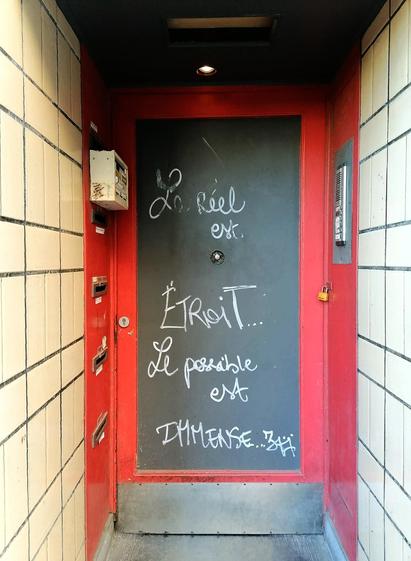 Le Réel
est
ÉTROIT...
Le possible
est
IMMENSE...